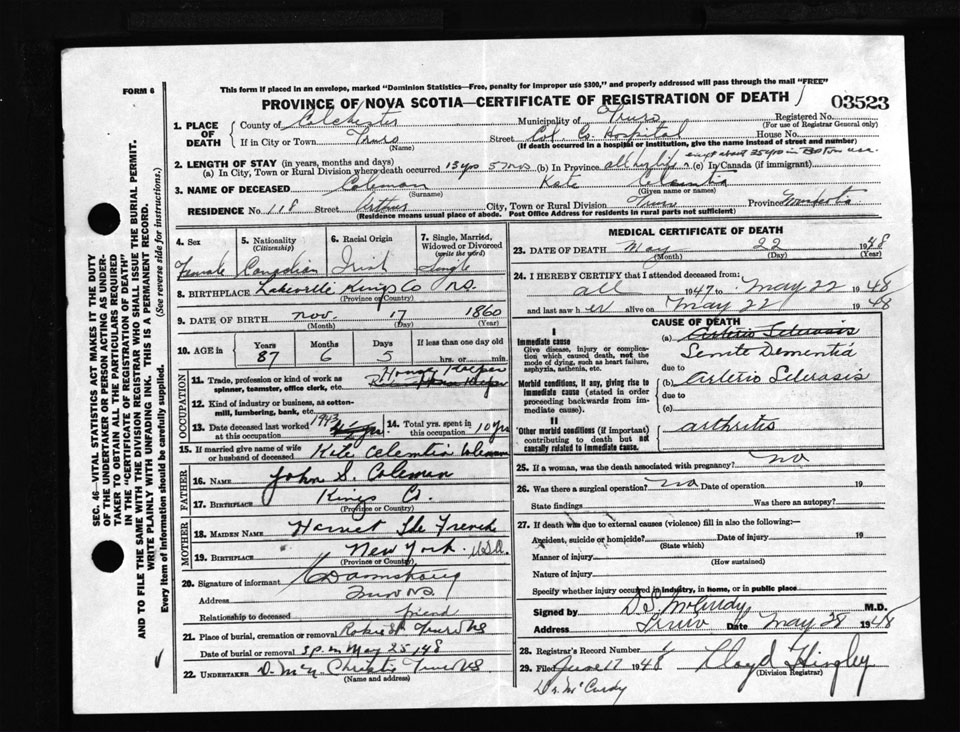 FORM 6
This form if placed in an envelope, marked "Dominion Statistics—Free, penalty for improper use $300," and properly addressed will pass through the mail "FREE"
PROVINCE OF NOVA SCOTIA—CERTIFICATE OF REGISTRATION OF DEATH
03523
1. PLACE OF DEATH
County of Colchester Municipality of Truro Registered No.
(For use of Registrar General only)
If in City or Town Truro Street Col. Co. Hospital House No.
(Name) (If death occurred in a hospital or institution, give the name instead of street and number)
2. LENGTH OF STAY (in years, months and days) except about 35 yrs in Boston
(a) In City, Town or Rural Division where death occurred 15 yrs 5 mos (b) In Province all her life (c) In Canada (if immigrant)
3. NAME OF DECEASED Coleman Kate
(Surname) (Given name or names)
RESIDENCE No. 118 Street Arthur City, Town or Rural Division Truro Province
(Residence means usual place of abode. Post Office Address for residents in rural parts not sufficient)
SEC. 46—VITAL STATISTICS ACT MAKES IT THE DUTY OF THE UNDERTAKER OR PERSON ACTING AS UNDERTAKER TO OBTAIN ALL THE PARTICULARS REQUIRED IN THE "CERTIFICATE OF REGISTRATION OF DEATH" AND TO FILE THE SAME WITH THE DIVISION REGISTRAR WHO SHALL ISSUE THE BURIAL PERMIT.
WRITE PLAINLY WITH UNFADING INK. THIS IS A PERMANENT RECORD.
Every item of information should be carefully supplied. (See reverse side for instructions.)
4. Sex 5. Nationality (Citizenship) 6. Racial Origin 7. Single, Married, Widowed or Divorced (write the word)
Female Canadian Irish Single
8. BIRTHPLACE Lakeville Kings Co N.S.
(Province or Country)
9. DATE OF BIRTH Nov. 17 1860
(Month) (Day) (Year)
10. AGE in Years Months Days If less than one day old
87 6 5 hrs. or min.
OCCUPATION
11. Trade, profession or kind of work as spinner, teamster, office clerk, etc. House Keeper
12. Kind of industry or business, as cotton-mill, lumbering, bank, etc.
13. Date deceased last worked at this occupation 1943 14. Total yrs. spent in this occupation 10 yrs
15. If married give name of wife or husband of deceased Kate Celemtia Coleman
FATHER
16. NAME John S. Coleman
17. BIRTHPLACE Kings Co.
(Province or Country)
MOTHER
18. MAIDEN NAME Harriet French
19. BIRTHPLACE New York. U.S.A.
(Province or Country)
20. Signature of informant
Address Truro N.S.
Relationship to deceased friend
21. Place of burial, cremation or removal Robie St Truro NS
Date of burial or removal 3 p.m May 25, 48
22. UNDERTAKER D. McN Christie Truro NS
(Name and address)
MEDICAL CERTIFICATE OF DEATH
23. DATE OF DEATH May 22 1948
(Month) (Day) (Year)
24. I HEREBY CERTIFY that I attended deceased from
all 1947 to May 22 1948
and last saw her alive on May 22 1948
CAUSE OF DEATH
I
Immediate cause
Give disease, injury or complication which caused death, not the mode of dying, such as heart failure, asphyxia, asthenia, etc.
(a) Arterio Sclerosis
Senile Dementia
due to
Morbid conditions, if any, giving rise to immediate cause (stated in order proceeding backwards from immediate cause).
(b) Arterio Sclerosis
due to
(c)
II
Other morbid conditions (if important) contributing to death but not causally related to immediate cause.
arthritis
25. If a woman, was the death associated with pregnancy? no
26. Was there a surgical operation? no Date of operation 19
State findings Was there an autopsy?
27. If death was due to external causes (violence) fill in also the following:—
Accident, suicide or homicide? Date of injury 19
(State which)
Manner of injury
(How sustained)
Nature of injury
Specify whether injury occurred in industry, in home, or in public place
Signed by D S McCurdy M.D.
Address Truro Date May 28 1948
28. Registrar's Record Number
29. Filed June 17 1948 Lloyd Hingley
(Division Registrar)
Dr. McCurdy